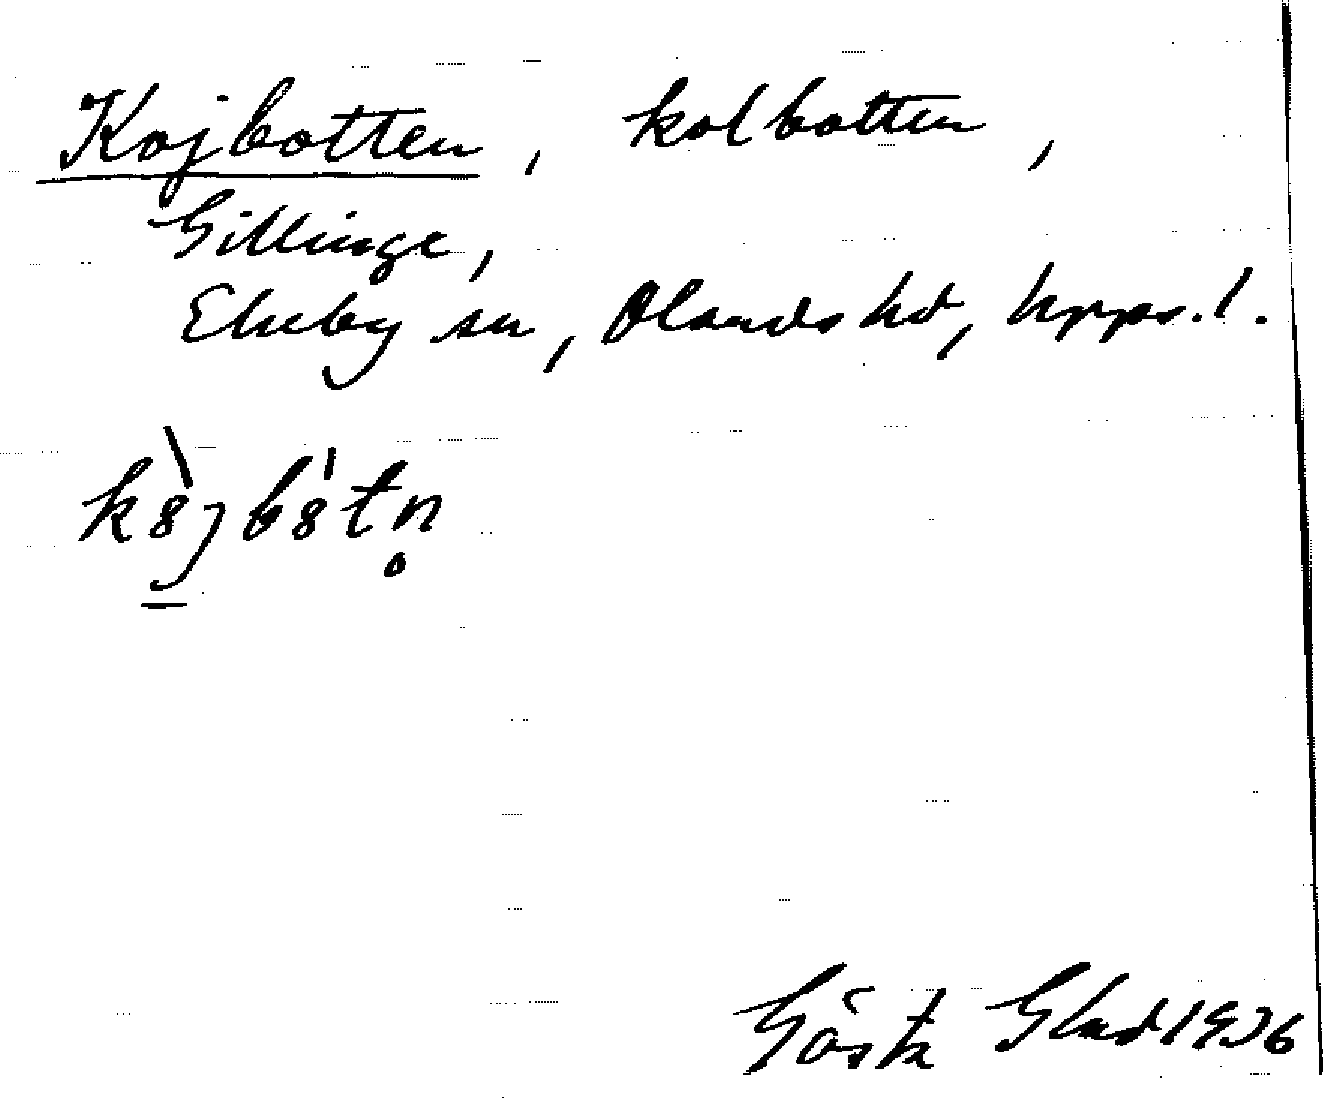 Kojbotten, kolbotten,
Gillinge,
Ekeby sn, Olands hd, Upps. l.
Gösta Glad 1936